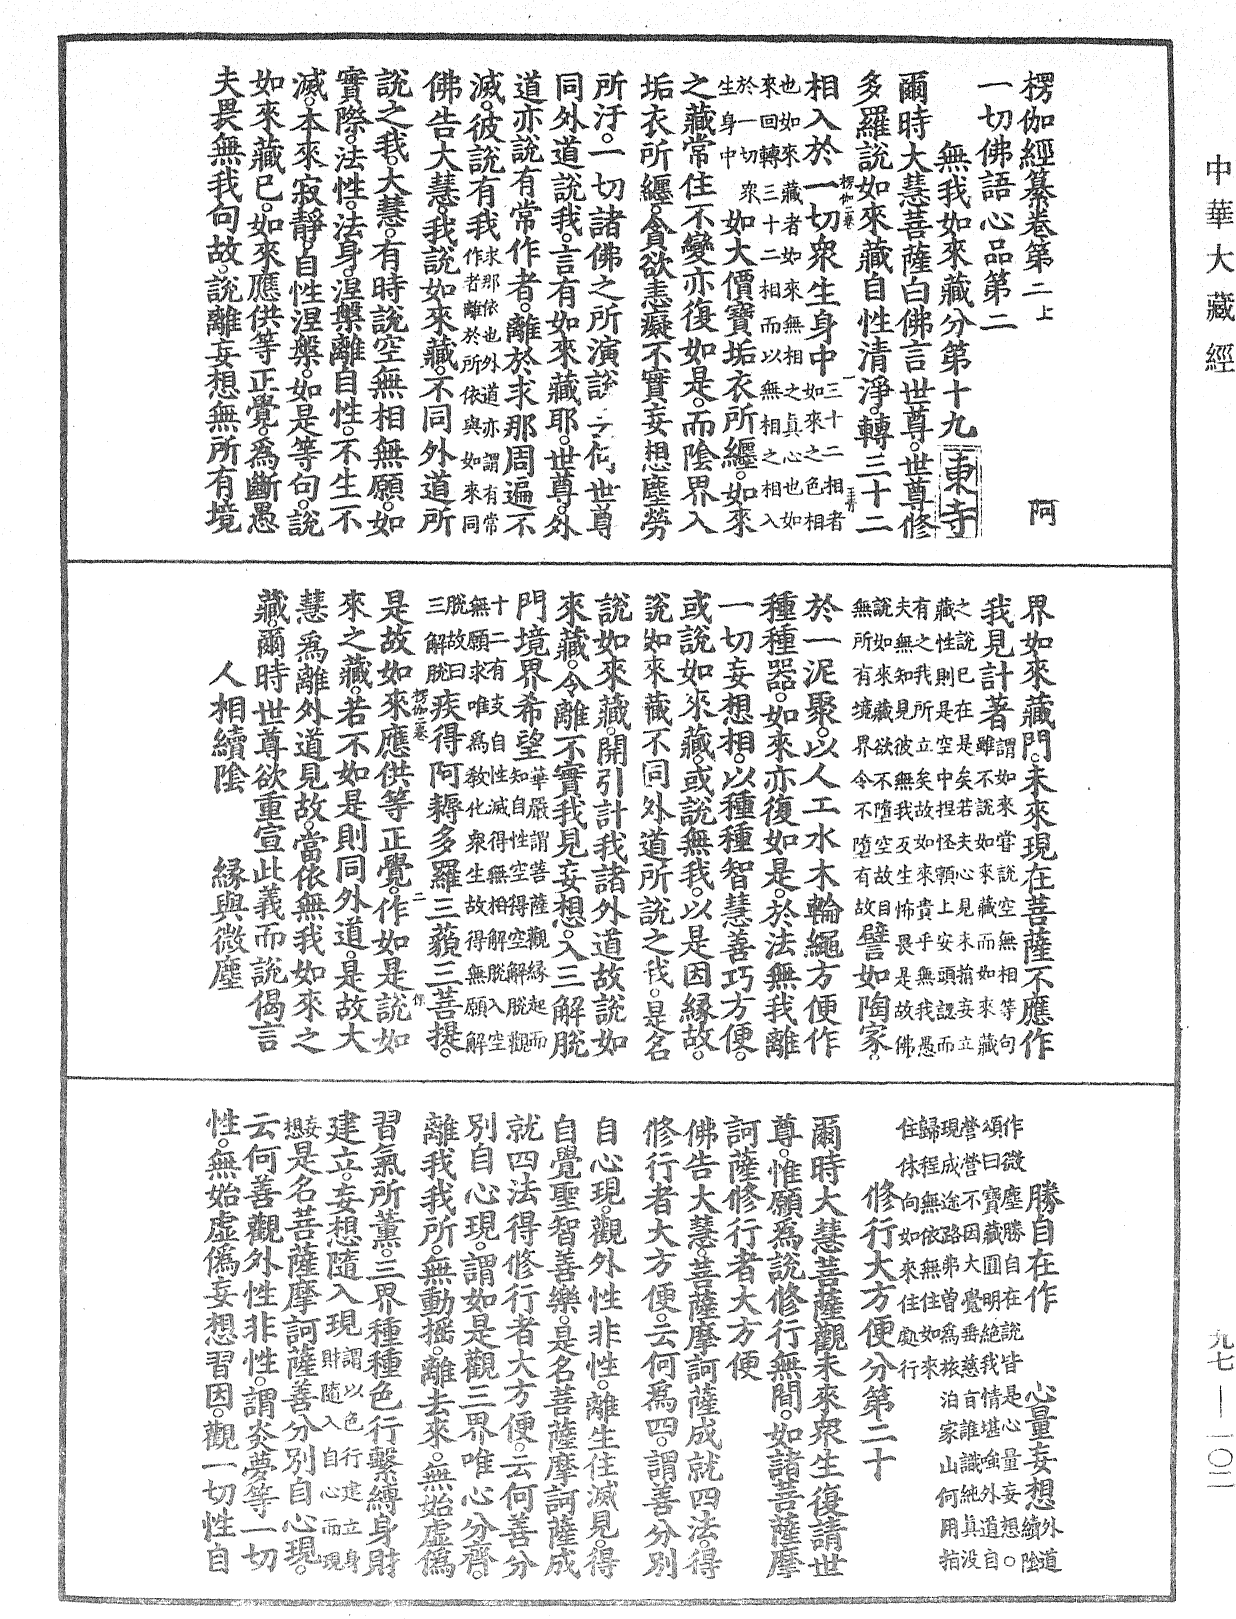 中華大藏經
楞伽經纂卷第二上 阿
一切佛語心品第二
無我如來藏分第十九 東寺
爾時大慧菩薩白佛言世尊。世尊修
多羅說如來藏自性清淨。轉三十二
相入於一切眾生身中三十二相者如來之色相
也如來藏者如來無相之真心也如
來回轉三十二相而以無相之相入
於一切眾生身中如大價寶垢衣所纏。如來
之藏常住不變亦復如是。而陰界入
垢衣所纏。貪欲恚癡不實妄想塵勞
所汙。一切諸佛之所演說云何世尊
同外道說我。言有如來藏耶。世尊。外
道亦說有常作者。離於求那周遍不
滅。彼說有我求那依也外道亦謂有常作者離於所依與如來同
佛告大慧。我說如來藏。不同外道所
說之我。大慧。有時說空無相無願。如
實際。法性。法身。涅槃。離自性。不生不
滅。本來寂靜。自性涅槃。如是等句。說
如來藏已。如來應供等正覺。為斷愚
夫畏無我句故。說離妄想無所有境
界如來藏門。未來現在菩薩不應作
我見計著謂如來嘗說空無相等句
雖不說如來藏而如來藏
之說已在是矣若夫心見未捐妄立
藏性則是空中捏怪頭上安頭認而
有之我所立矣故如來貴乎無我愚
夫無知見彼無我反生怖畏是故佛
說如來藏欲不墮空故目
無所有境界令不墮有故譬如陶家。
於一泥聚。以人工水木輪繩方便作
種種器。如來亦復如是。於法無我離
一切妄想相。以種種智慧善巧方便。
或說如來藏。或說無我。以是因緣故。
說如來藏不同外道所說之我。是名
說如來藏。開引計我諸外道故說如
來藏。令離不實我見妄想。入三解脫
門境界希望華嚴謂菩薩觀緣起而
知自性空得空解脫觀
十二有支自性滅得無相解脫入空
無願求唯為教化眾生故得無願解
脫故曰三解脫疾得阿耨多羅三藐三菩提。
是故如來應供等正覺。作如是說如
來之藏。若不如是則同外道。是故大
慧。為離外道見故。當依無我如來之
藏。爾時世尊欲重宣此義而說偈言
人相續陰 緣與微塵
勝自在作 心量妄想外道續陰
作微塵勝自在說皆是心量妄想。
頌曰寶藏圓明絕我情堪嗤外道自
營營不因大覺垂慈旨誰識純真沒
現成途路弗曾為旅泊家山何用指
歸程無依無住如來
住休向如來住處行
修行大方便分第二十
爾時大慧菩薩觀未來眾生復請世
尊。惟願為說修行無間。如諸菩薩摩
訶薩修行者大方便
佛告大慧。菩薩摩訶薩成就四法。得
修行者大方便。云何為四。謂善分別
自心現。觀外性非性。離生住滅見。得
自覺聖智善樂。是名菩薩摩訶薩成
就四法得修行者大方便。云何善分
別自心現。謂如是觀三界唯心分齊。
離我我所。無動搖。離去來。無始虛偽
習氣所薰。三界種種色行繫縛身財
建立。妄想隨入現謂以色行建立身財隨入自心而現
妄想是名菩薩摩訶薩善分別自心現。
云何善觀外性非性。謂炎夢等一切
性。無始虛偽妄想習因。觀一切性自
九七—一〇二